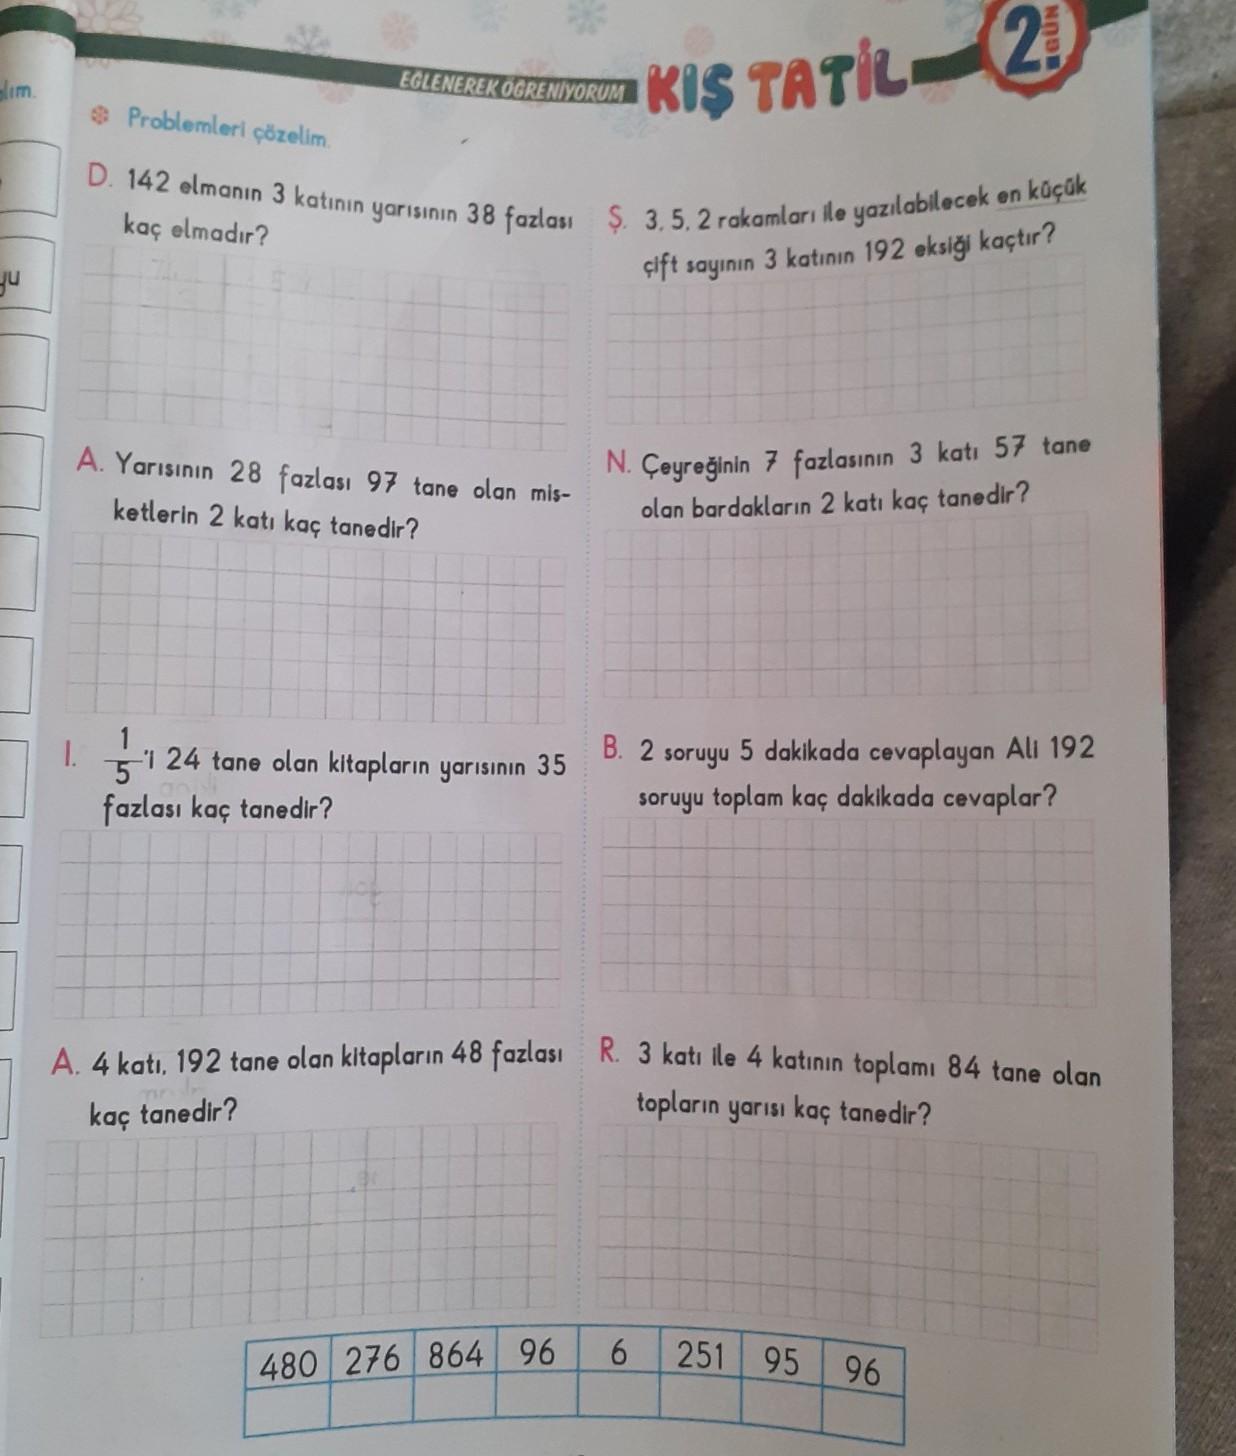 lim.
yu
EĞLENEREK ÖĞRENİYORUM KIŞ TATİLİ
2. GÜN
Problemleri çözelim.
D. 142 elmanın 3 katının yarısının 38 fazlası
kaç elmadır?
Ş. 3, 5, 2 rakamları ile yazılabilecek en küçük
çift sayının 3 katının 192 eksiği kaçtır?
A. Yarısının 28 fazlası 97 tane olan mis-
ketlerin 2 katı kaç tanedir?
N. Çeyreğinin 7 fazlasının 3 katı 57 tane
olan bardakların 2 katı kaç tanedir?
I. 1/5'i 24 tane olan kitapların yarısının 35
fazlası kaç tanedir?
B. 2 soruyu 5 dakikada cevaplayan Ali 192
soruyu toplam kaç dakikada cevaplar?
A. 4 katı, 192 tane olan kitapların 48 fazlası
kaç tanedir?
R. 3 katı ile 4 katının toplamı 84 tane olan
topların yarısı kaç tanedir?
480 276 864 96 6 251 95 96